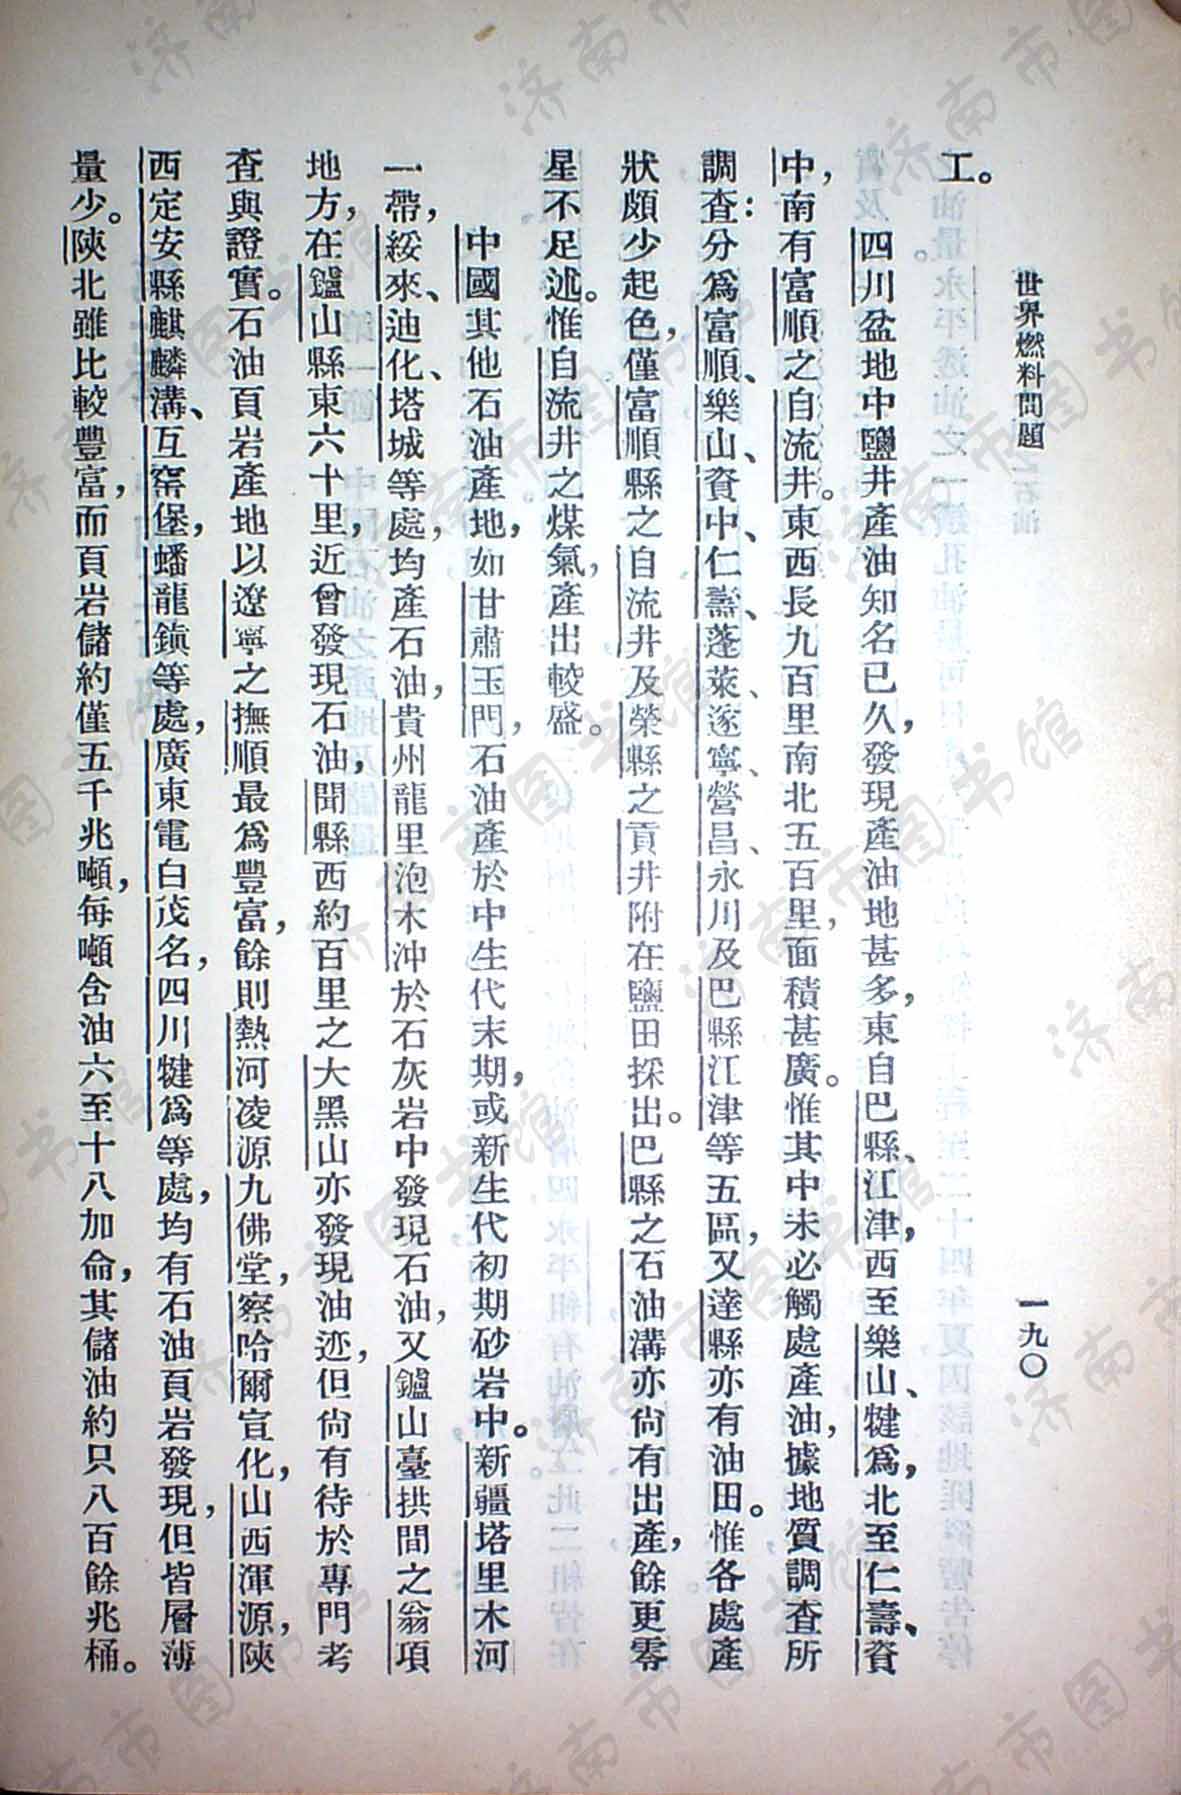 世界燃料問題
一九〇
工。
四川盆地中鹽井產油知名已久，發現產油地甚多，東自巴縣、江津，西至樂山、犍爲，北至仁壽、資
中，南有富順之自流井。東西長九百里南北五百里，面積甚廣。惟其中未必觸處產油，據地質調查所
調查：分爲富順、樂山、資中、仁壽、蓬萊、遂寧、營昌、永川及巴縣江津等五區，又達縣亦有油田。惟各處產
狀頗少起色，僅富順縣之自流井及榮縣之貢井附在鹽田採出。巴縣之石油溝亦尙有出產，餘更零
星不足述。惟自流井之煤氣，產出較盛。
中國其他石油產地，如甘肅玉門，石油產於中生代末期，或新生代初期砂岩中。新疆塔里木河
一帶，綏來、迪化、塔城等處，均產石油，貴州龍里泡木沖於石灰岩中發現石油，又鑪山臺拱間之翁項
地方，在鑪山縣東六十里，近曾發現石油，聞縣西約百里之大黑山亦發現油迹，但尙有待於專門考
查與證實。石油頁岩產地以遼寧之撫順最爲豐富，餘則熱河凌源九佛堂，察哈爾宣化，山西渾源，陝
西定安縣麒麟溝、互窰堡，蟠龍鎭等處，廣東電白茂名，四川犍爲等處，均有石油頁岩發現，但皆層薄
量少。陝北雖比較豐富，而頁岩儲約僅五千兆噸，每噸含油六至十八加侖，其儲油約只八百餘兆桶。
济南市图书馆